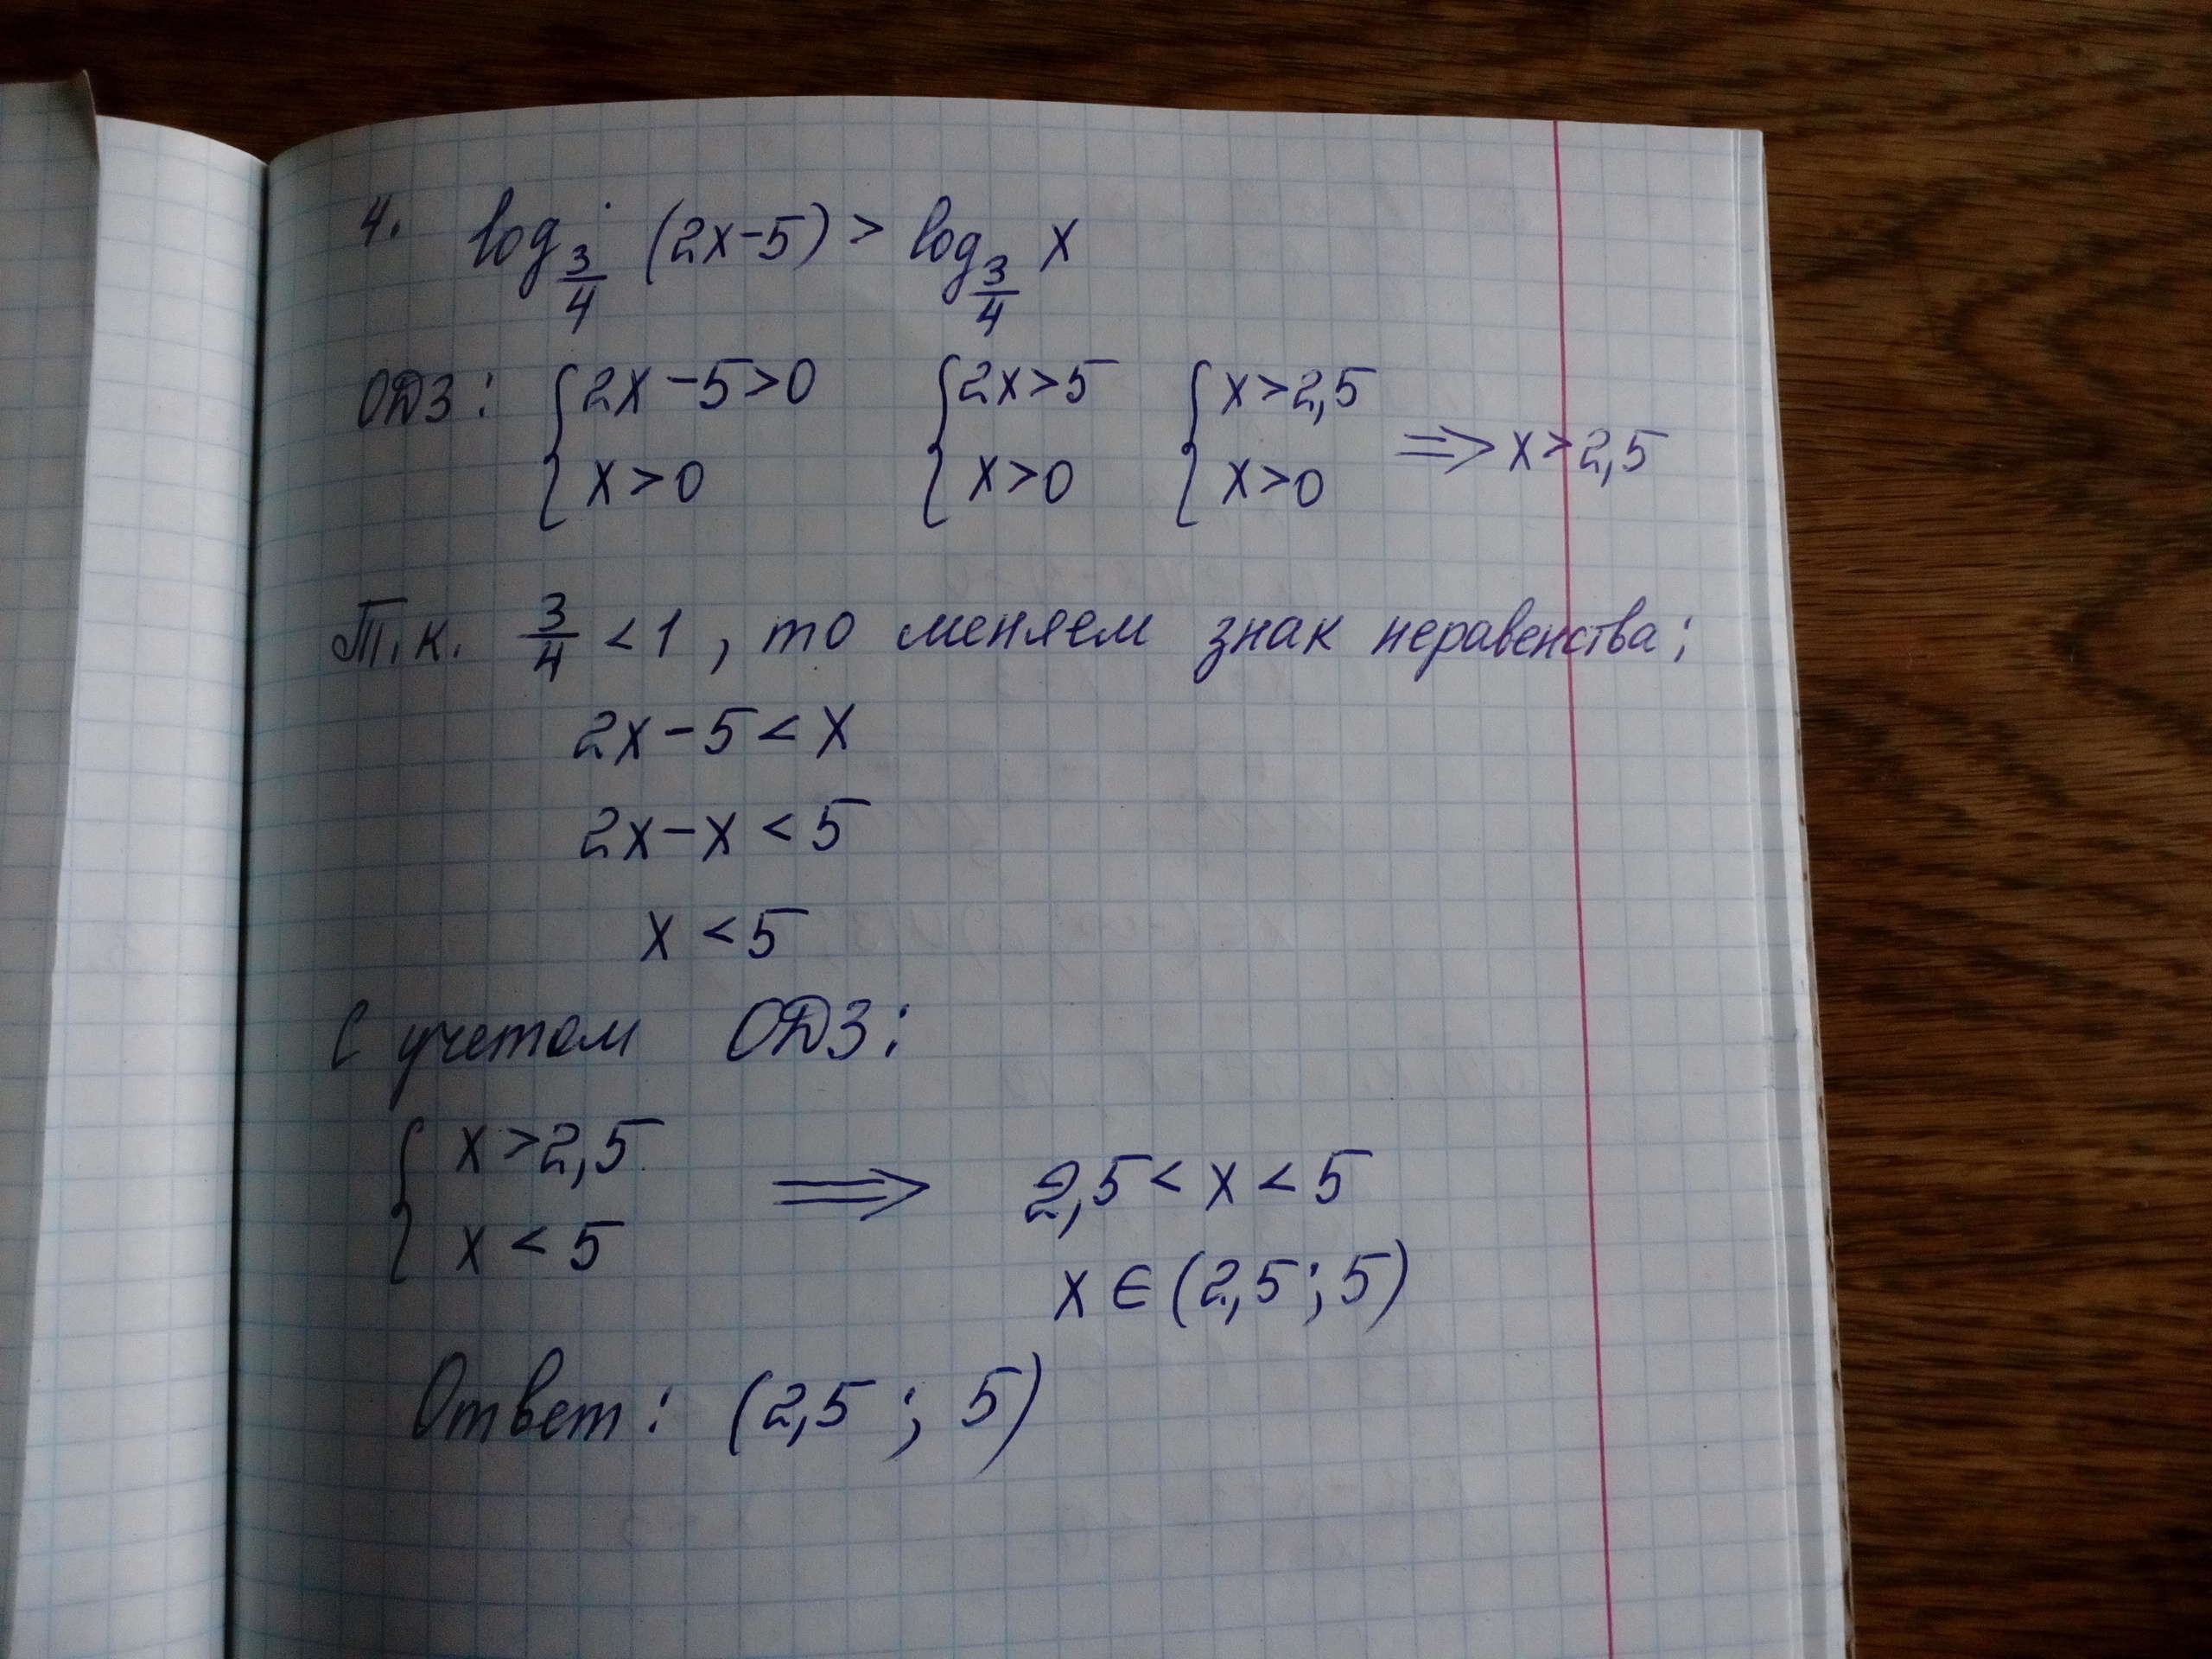 4. log_{3/4} (2x-5) > log_{3/4} x
ОДЗ: { 2x-5>0 { 2x>5 { x>2,5
x>0 x>0 x>0 ⟹ x>2,5
Т.к. 3/4 < 1, то меняем знак неравенства:
2x-5 < x
2x-x < 5
x < 5
С учетом ОДЗ:
{ x>2,5 ⟹ 2,5 < x < 5
x < 5 x ∈ (2,5; 5)
Ответ: (2,5; 5)